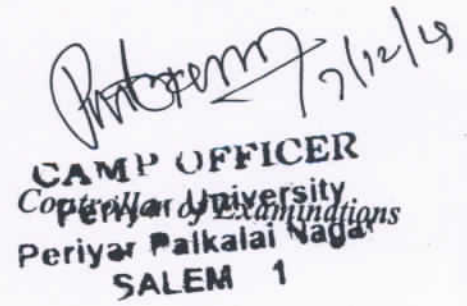 7/12/19
CAMP OFFICER
Controller of Examinations
Periyar University
Periyar Palkalai Nagar
SALEM 1